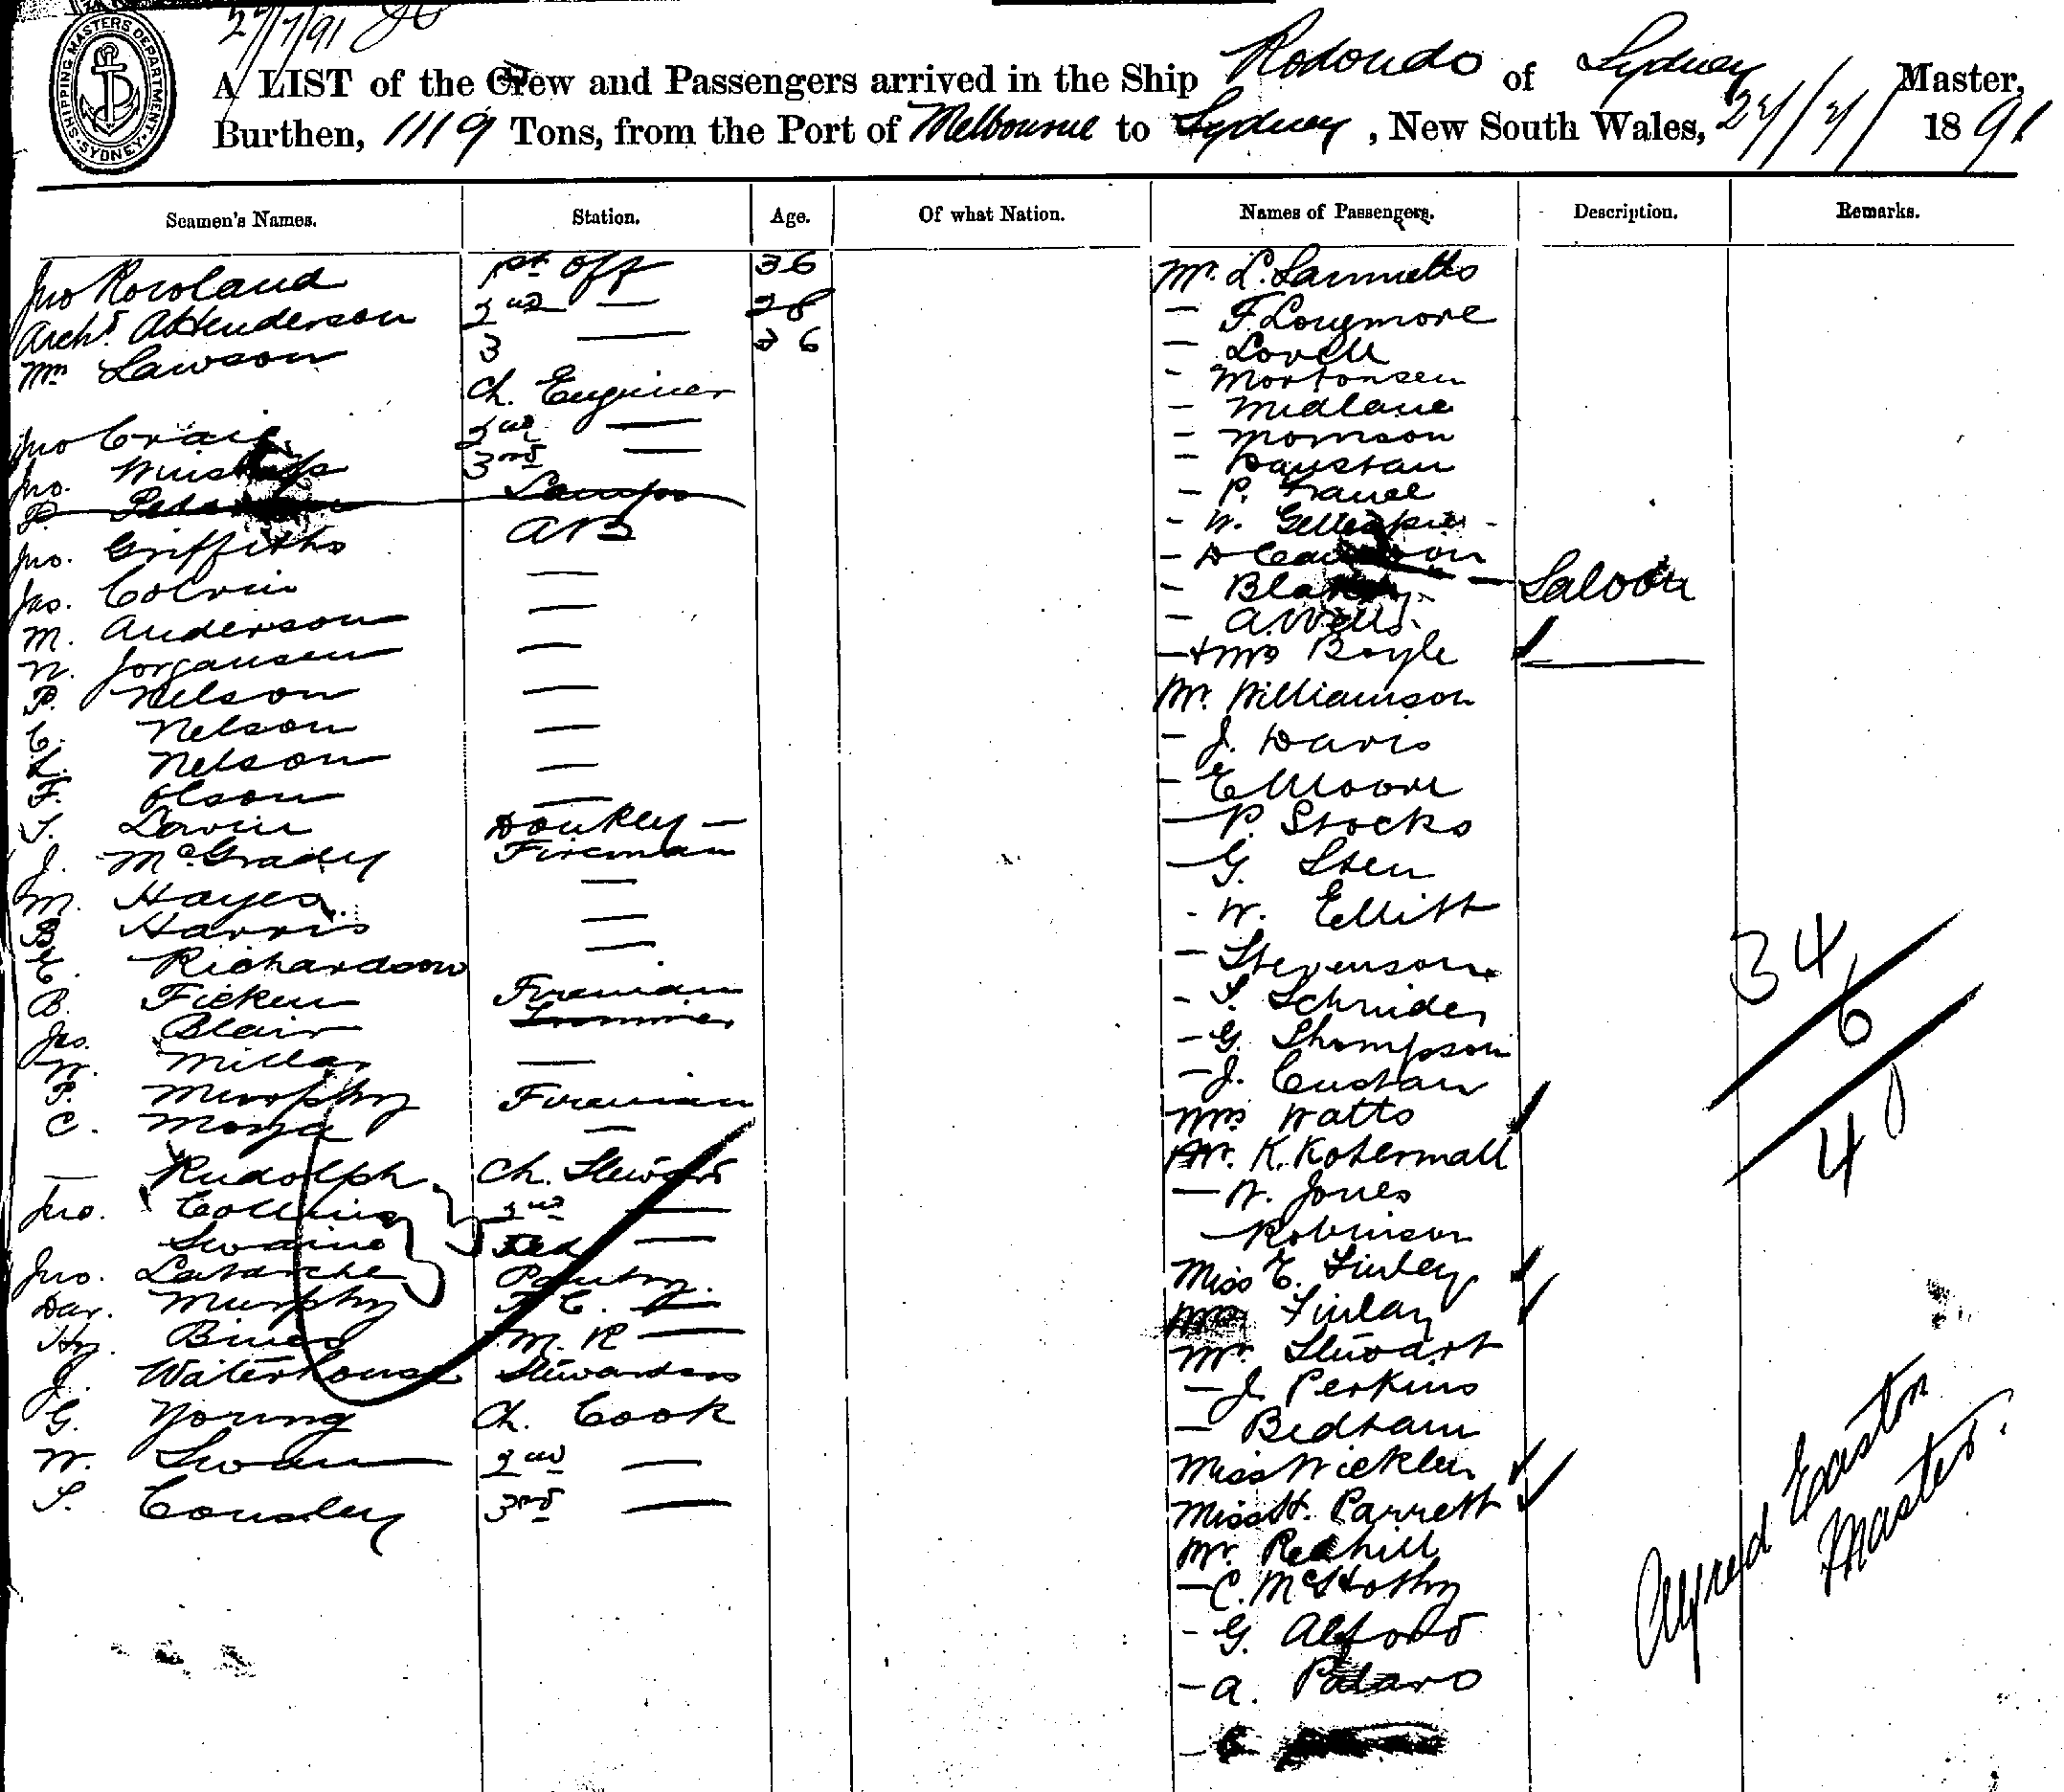 27/7/91
SHIPPING MASTERS DEPARTMENT. SYDNEY.
A LIST of the Crew and Passengers arrived in the Ship Rodondo of Sydney Master,
Burthen, 1119 Tons, from the Port of Melbourne to Sydney, New South Wales, 27/7/ 1891
Seamen's Names. Station. Age. Of what Nation. Names of Passengers. Description. Remarks.
Jno Rowland 1st Off 36
Archd. A Henderson 2nd — 28
Wm Lawson 3 — 26
Ch. Engineer
Jno Craig 2nd —
Jno. 3rd —
P. Lamps
Jno. Griffiths AB
Jas. Colvin —
M. Anderson —
N. Jorgansen —
P. Nelson —
C. Nelson —
L. Nelson —
F. Olson —
S. Donkey —
J. McGrady Fireman
M. Hayes —
B. Harris —
E. Richardson —
B. Ficken Fireman
Jas. Blair Trimmer
W. Millar —
P. Murphy Fireman
C. —
— Rudolph Ch. Steward
Jno. Collins 2nd —
Swaine —
Jno. Latarche Pantry.
Dav. Murphy F. C. —
Hy. Bines M. R —
J. Waterhouse Stewardess
G. Young Ch. Cook
W. Swan 2nd —
S. Cousley 3rd —
Mr. L.
— F. Longmore
— Lovell
— Mortonsen
— Midlane
— Morrison
—
— P.
— W. Gillespie
— D
— Saloon
— A. Wells
— + Mrs Boyle —
Mr. Williamson
— J. Davis
— E Moore
— P. Stocks
— G. Sten
— W. Ellitt
— Stevenson
— S. Schnider
— G. Thompson
— J. Custan
Mrs Watts
Mr. K. Kotermall
— W. Jones
Robinson
Miss E. Finley
Mrs Finlay
Mr. Stewart
— J. Perkins
— Bedham
Miss Wicklen
Miss H. Parrett
Mr. Redhill
— C.
— G. Alford
— A.
34
6
40
Alfred Easton
Master.